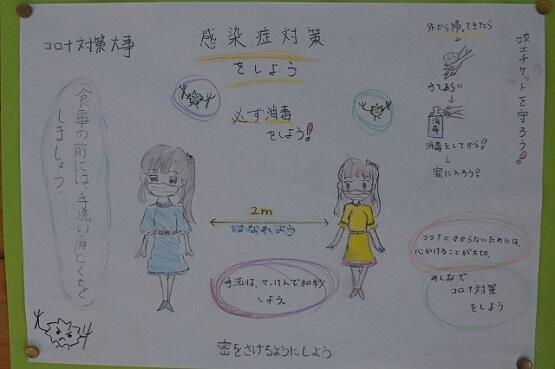 コロナ対策大事
感染症対策
をしよう
必ず消毒
をしよう!
食事の前には、手洗い消どくを
しましょう。
2m
はなれよう
手洗は、せっけんで30秒
しよう。
密をさけるようにしよう
外から帰ってきたら
↓
手あらい
↓
消毒
消毒をしてから!
↓
家に入ろう!
咳エチケットを守ろう!
コロナにかからないためには、
心がけることが大切。
みんなで
コロナ対策
をしよう